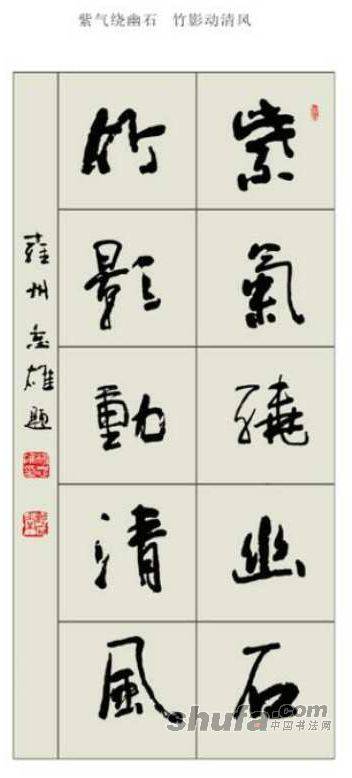 紫气绕幽石 竹影动清风
紫氣繞幽石
竹影動清風
shufa.com
中国书法网